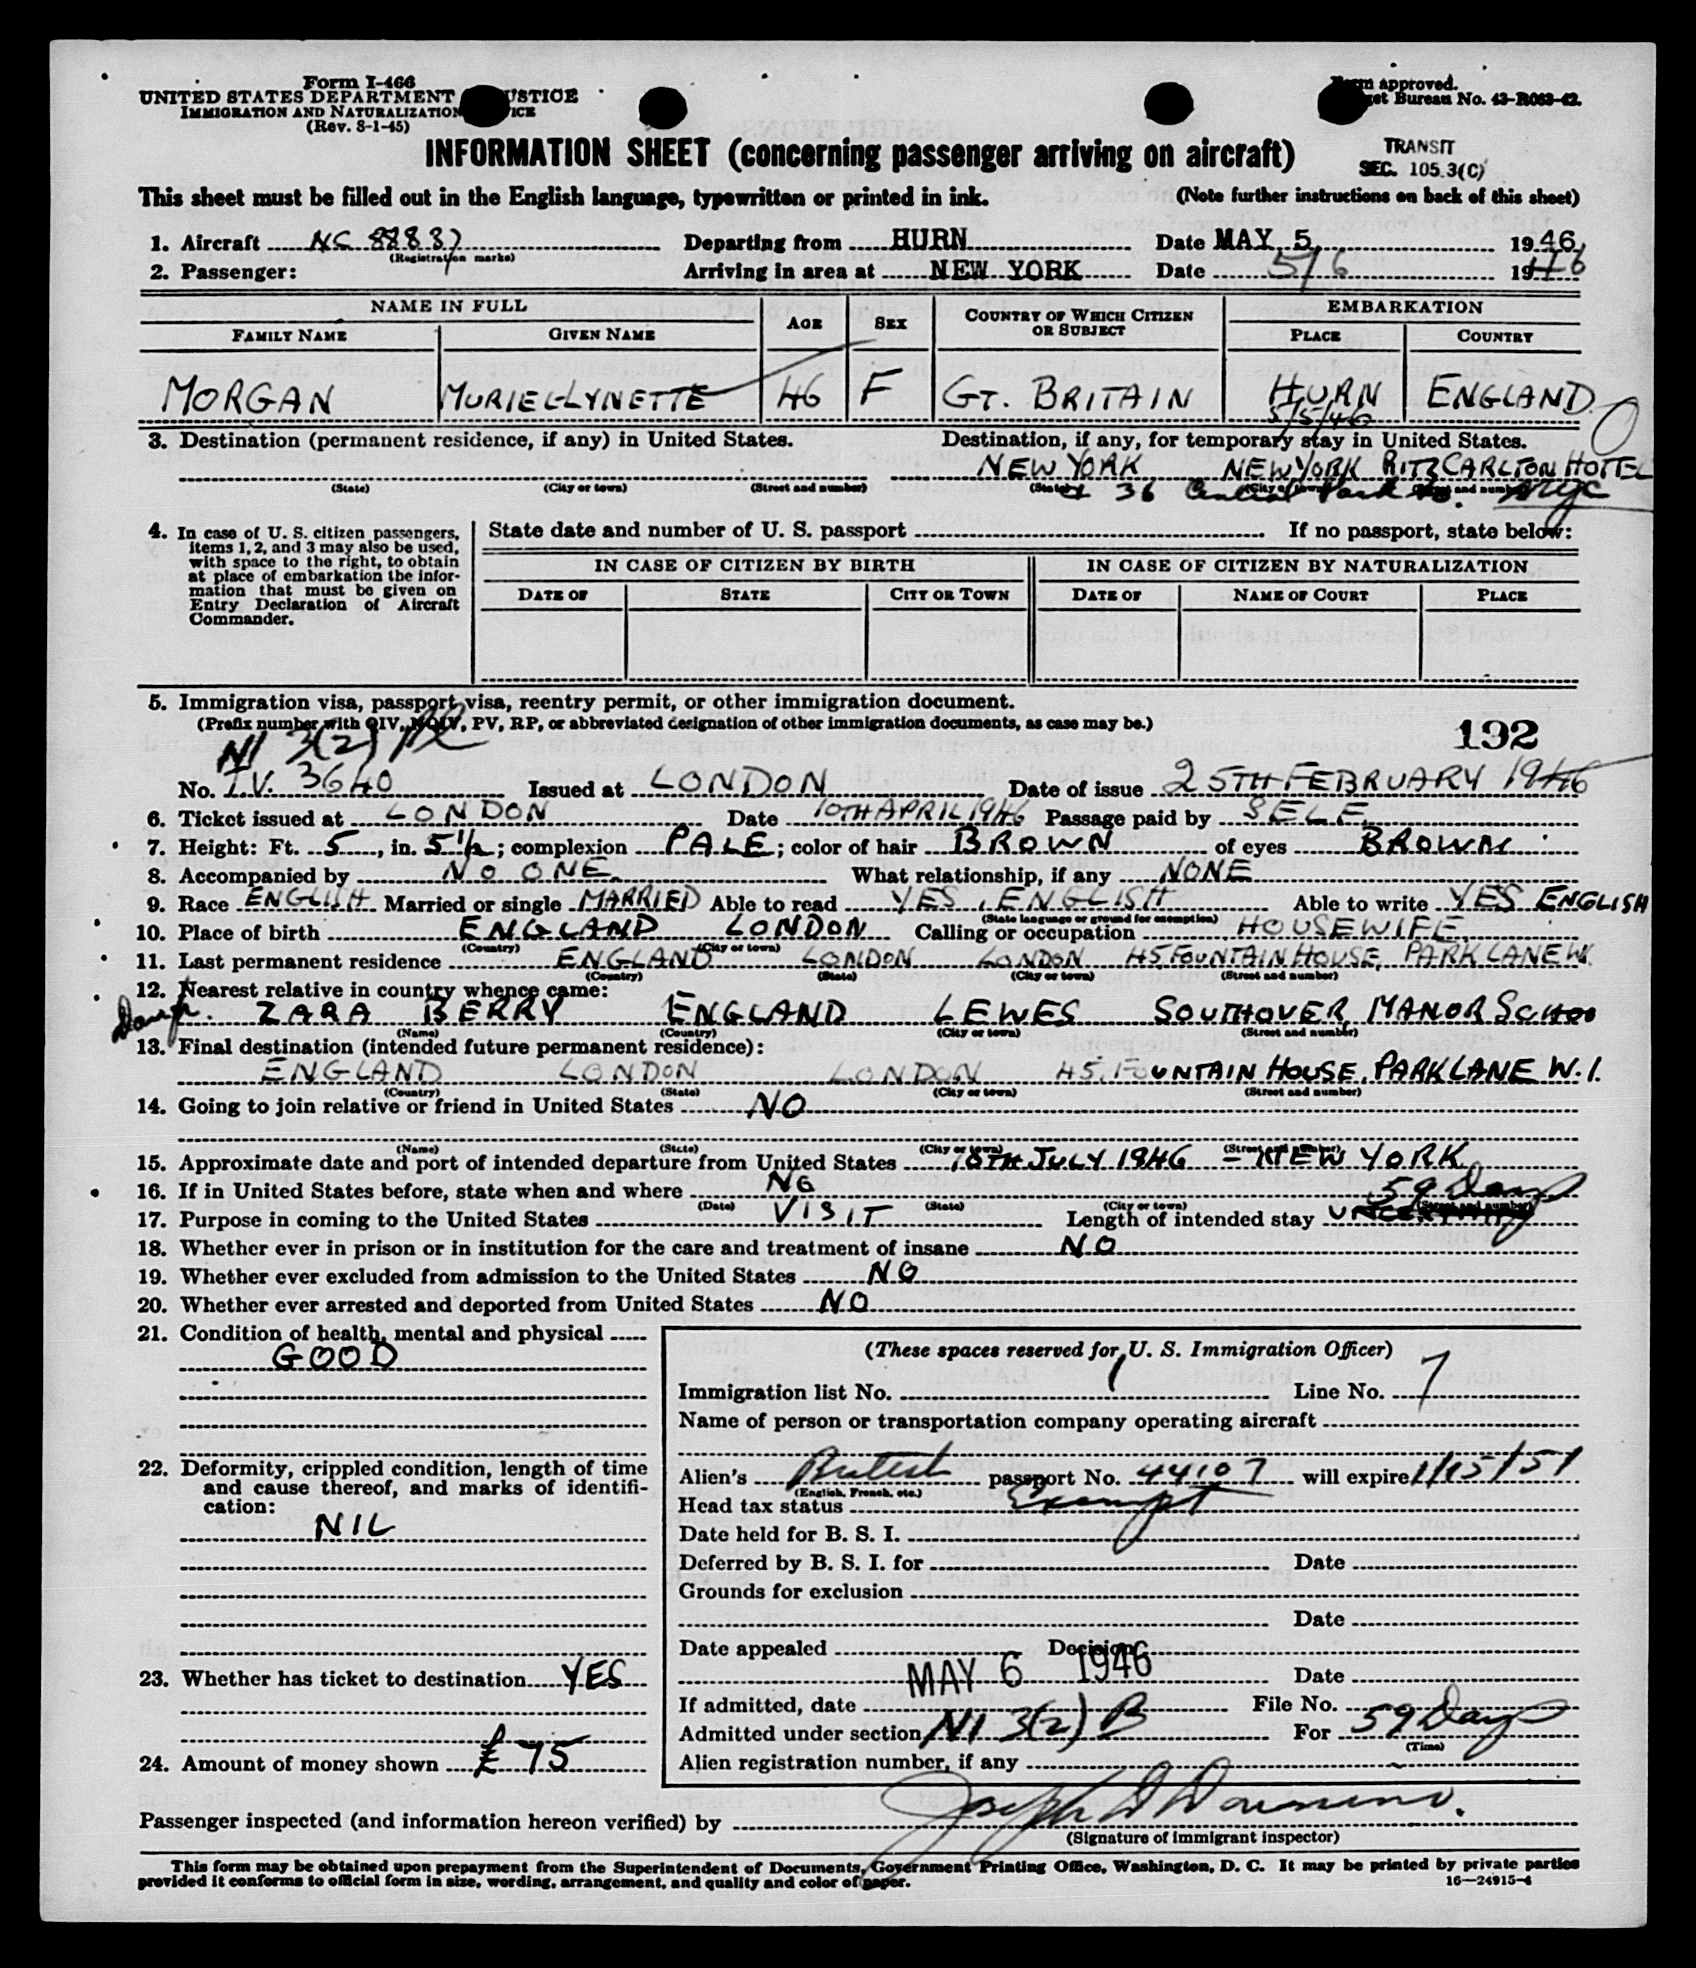 Form I-466
UNITED STATES DEPARTMENT JUSTICE
IMMIGRATION AND NATURALIZATION
(Rev. 8-1-45)
Form approved.
Budget Bureau No. 43-R083-42.
INFORMATION SHEET (concerning passenger arriving on aircraft)
TRANSIT
SEC. 105.3(C)
This sheet must be filled out in the English language, typewritten or printed in ink. (Note further instructions on back of this sheet)
1. Aircraft NC 88887 Departing from HURN Date MAY 5, 1946
(Registration marks)
2. Passenger: Arriving in area at NEW YORK Date 5/6 1946
NAME IN FULL
FAMILY NAME GIVEN NAME AGE SEX COUNTRY OF WHICH CITIZEN OR SUBJECT EMBARKATION
PLACE COUNTRY
MORGAN MURIEL-LYNETTE 46 F GT. BRITAIN HURN ENGLAND
5/5/46
3. Destination (permanent residence, if any) in United States. Destination, if any, for temporary stay in United States.
NEW YORK NEW YORK RITZ CARLTON HOTEL
(State) (City or town) (Street and number) (State) (City or town) (Street and number)
36 Central Park So. NYC
4. In case of U. S. citizen passengers, items 1, 2, and 3 may also be used, with space to the right, to obtain at place of embarkation the information that must be given on Entry Declaration of Aircraft Commander.
State date and number of U. S. passport If no passport, state below:
IN CASE OF CITIZEN BY BIRTH IN CASE OF CITIZEN BY NATURALIZATION
DATE OF STATE CITY OR TOWN DATE OF NAME OF COURT PLACE
5. Immigration visa, passport visa, reentry permit, or other immigration document.
(Prefix number with QIV, NQIV, PV, RP, or abbreviated designation of other immigration documents, as case may be.)
192
NI 3(2)
No. T.V. 3640 Issued at LONDON Date of issue 25TH FEBRUARY 1946
6. Ticket issued at LONDON Date 10TH APRIL 1946 Passage paid by SELF
7. Height: Ft. 5, in. 5 1/2; complexion PALE; color of hair BROWN of eyes BROWN
8. Accompanied by NO ONE. What relationship, if any NONE
9. Race ENGLISH Married or single MARRIED Able to read YES, ENGLISH Able to write YES ENGLISH
(State language or ground for exemption)
10. Place of birth ENGLAND LONDON Calling or occupation HOUSEWIFE.
(Country) (City or town)
11. Last permanent residence ENGLAND LONDON LONDON 45, FOUNTAIN HOUSE, PARK LANE W.
(Country) (State) (City or town) (Street and number)
12. Nearest relative in country whence came:
Daugh. ZARA BERRY ENGLAND LEWES SOUTHOVER MANOR SCHOO
(Name) (Country) (City or town) (Street and number)
13. Final destination (intended future permanent residence):
ENGLAND LONDON LONDON 45, FOUNTAIN HOUSE, PARK LANE W.1.
(Country) (State) (City or town) (Street and number)
14. Going to join relative or friend in United States NO
(Name) (State) (City or town) (Street and number)
15. Approximate date and port of intended departure from United States 10TH JULY 1946 - NEW YORK
16. If in United States before, state when and where NO
(Date) (State) (City or town) (Street and number)
59 Days
17. Purpose in coming to the United States VISIT Length of intended stay
18. Whether ever in prison or in institution for the care and treatment of insane NO
19. Whether ever excluded from admission to the United States NO
20. Whether ever arrested and deported from United States NO
21. Condition of health, mental and physical
GOOD
22. Deformity, crippled condition, length of time and cause thereof, and marks of identification:
NIL
23. Whether has ticket to destination YES
24. Amount of money shown £ 75
(These spaces reserved for U. S. Immigration Officer)
Immigration list No. 1 Line No. 7
Name of person or transportation company operating aircraft
Alien's British passport No. 44107 will expire 1/15/51
(English, French, etc.)
Head tax status Exempt
Date held for B. S. I.
Deferred by B. S. I. for Date
Grounds for exclusion
Date
Date appealed Decision
MAY 6 1946 Date
If admitted, date File No.
Admitted under section NI 3(2) B For 59 Days
(Time)
Alien registration number, if any
Passenger inspected (and information hereon verified) by
(Signature of immigrant inspector)
This form may be obtained upon prepayment from the Superintendent of Documents, Government Printing Office, Washington, D. C. It may be printed by private parties
provided it conforms to official form in size, wording, arrangement, and quality and color of paper.
16—24915-4